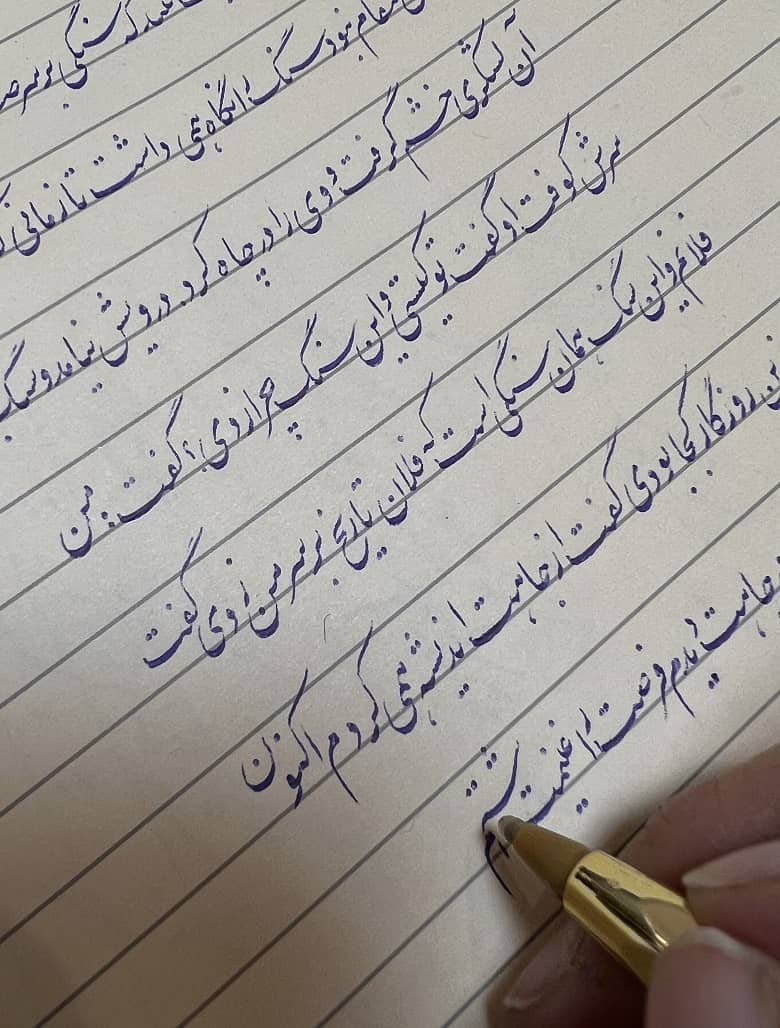 که سنگی بر سر
نبود سنگ را نگاه همی داشت تا زمانی
آن لشکری خشم گرفت و وی را در چاه کرد. درویش بیامد و سنگ
سرش کوفت او گفت تو کیستی و این سنگ چرا زدی؟ گفت: من
فلانم و این سنگ همان سنگی است که فلان تاریخ بر سر من زدی گفت
روزگار کجا بودی گفت از جاهت اندیشه همی کردم اکنون
چاهت دیدم فرصت را غنیمت